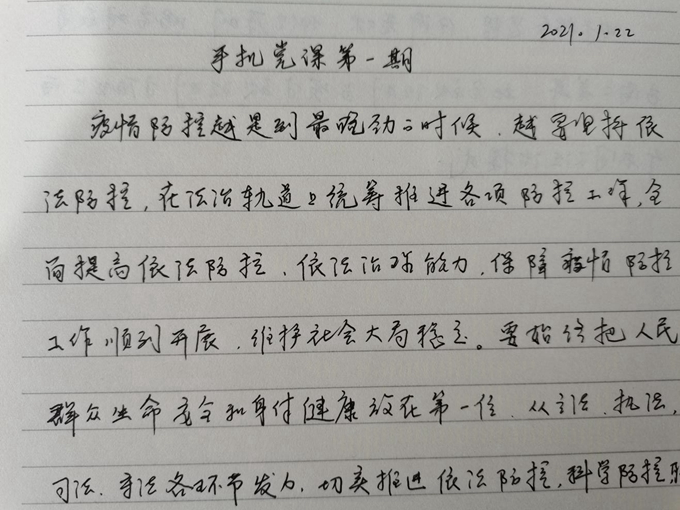 2021.1.22
手机党课第一期
疫情防控越是到最吃劲的时候,越要坚持依
法防控,在法治轨道上统筹推进各项防控工作,全
面提高依法防控、依法治理能力,保障疫情防控
工作顺利开展,维护社会大局稳定。要始终把人民
群众生命安全和身体健康放在第一位,从立法、执法、
司法、守法各环节发力,切实推进依法防控,科学防控联